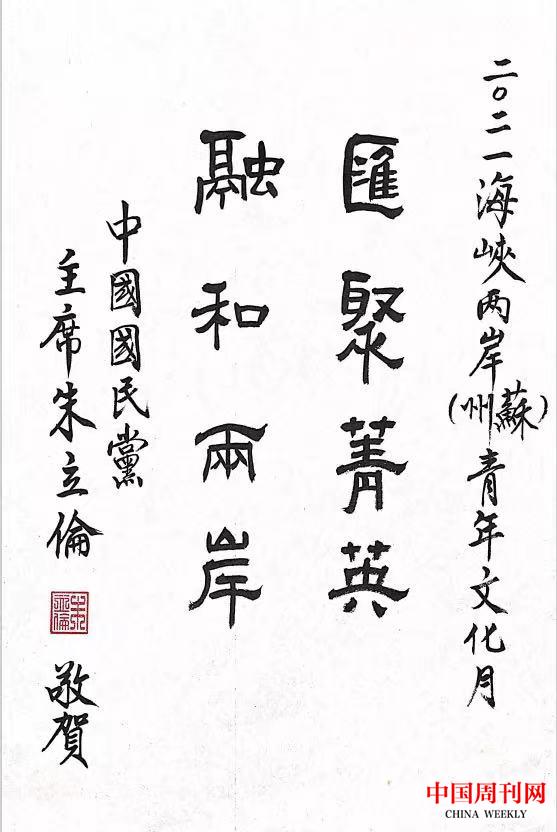 二〇二一海峽两岸(蘇州)青年文化月
匯聚菁英
融和兩岸
中國國民黨
主席朱立倫
朱立倫
敬賀
中国周刊网
CHINA WEEKLY